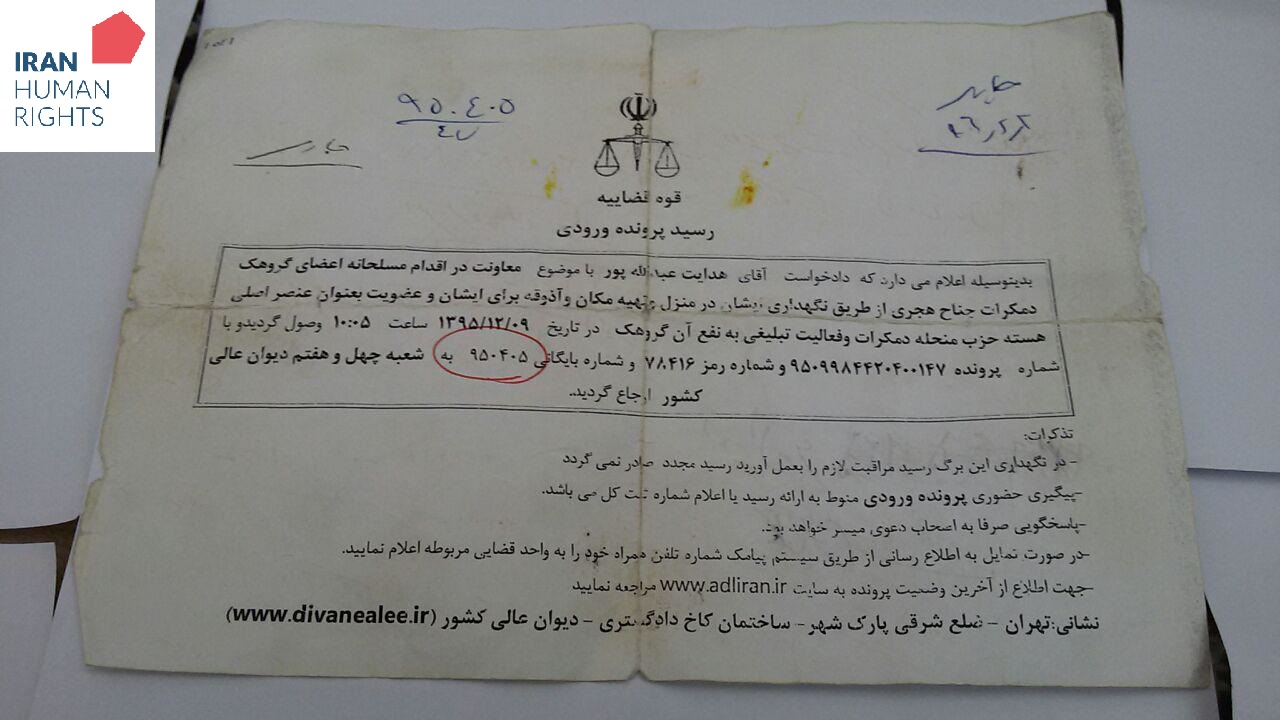 IRAN
HUMAN
RIGHTS
۹۵۰۴۰۵
۴۷
قوه قضاییه
رسید پرونده ورودی
بدینوسیله اعلام می دارد که دادخواست آقای هدایت عبدالله پور با موضوع معاونت در اقدام مسلحانه اعضای گروهک
دمکرات جناح هجری از طریق نگهداری ایشان در منزل وتهیه مکان وآذوقه برای ایشان و عضویت بعنوان عنصر اصلی
هسته حزب منحله دمکرات وفعالیت تبلیغی به نفع آن گروهک در تاریخ ۱۳۹۵/۱۲/۰۹ ساعت ۱۰:۰۵ وصول گردیدو با
شماره پرونده ۹۵۰۹۹۸۴۴۲۰۴۰۰۱۴۷ و شماره رمز ۷۸۴۱۶ و شماره بایگانی ۹۵۰۴۰۵ به شعبه چهل و هفتم دیوان عالی
کشور ارجاع گردید.
تذکرات:
- در نگهداری این برگ رسید مراقبت لازم را بعمل آورید رسید مجدد صادر نمی گردد
-پیگیری حضوری پرونده ورودی منوط به ارائه رسید یا اعلام شماره ثبت کل می باشد.
-پاسخگویی صرفا به اصحاب دعوی میسر خواهد بود.
-در صورت تمایل به اطلاع رسانی از طریق سیستم پیامک شماره تلفن همراه خود را به واحد قضایی مربوطه اعلام نمایید.
-جهت اطلاع از آخرین وضعیت پرونده به سایت www.adliran.ir مراجعه نمایید
نشانی:تهران - ضلع شرقی پارک شهر- ساختمان کاخ دادگستری - دیوان عالی کشور (www.divanealee.ir)